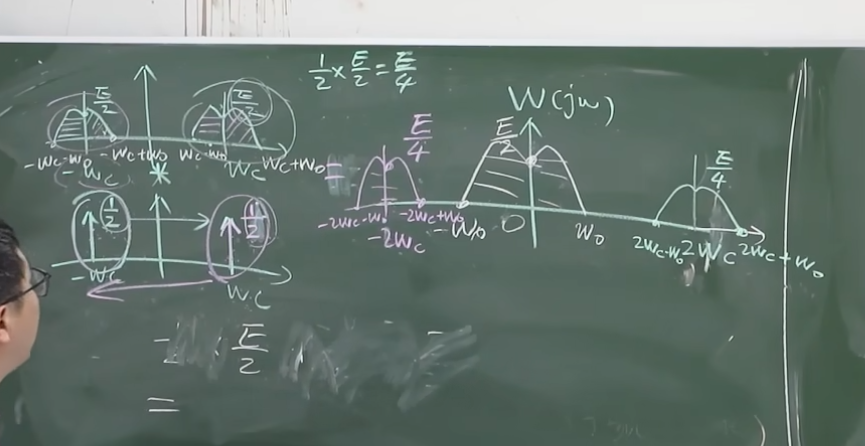 1/2 × E/2 = E/4
E/2
E/2
-Wc-W₀ -Wc+W₀
-Wc
Wc-W₀ Wc+W₀
Wc
*
1/2
1/2
-Wc
Wc
=
W(jω)
E/4
E/2
E/4
-2Wc-W₀ -2Wc+W₀
-2Wc
-W₀
0
W₀
2Wc-W₀ 2Wc 2Wc+W₀
E/2
=